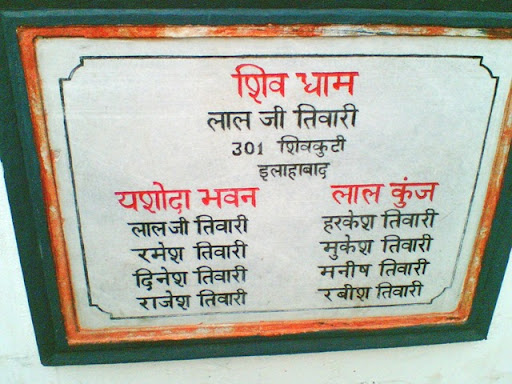 शिव धाम
लाल जी तिवारी
301 शिवकुटी
इलाहाबाद
यशोदा भवन
लालजी तिवारी
रमेश तिवारी
दिनेश तिवारी
राजेश तिवारी
लाल कुंज
हरकेश तिवारी
मुकेश तिवारी
मनीष तिवारी
रबीश तिवारी